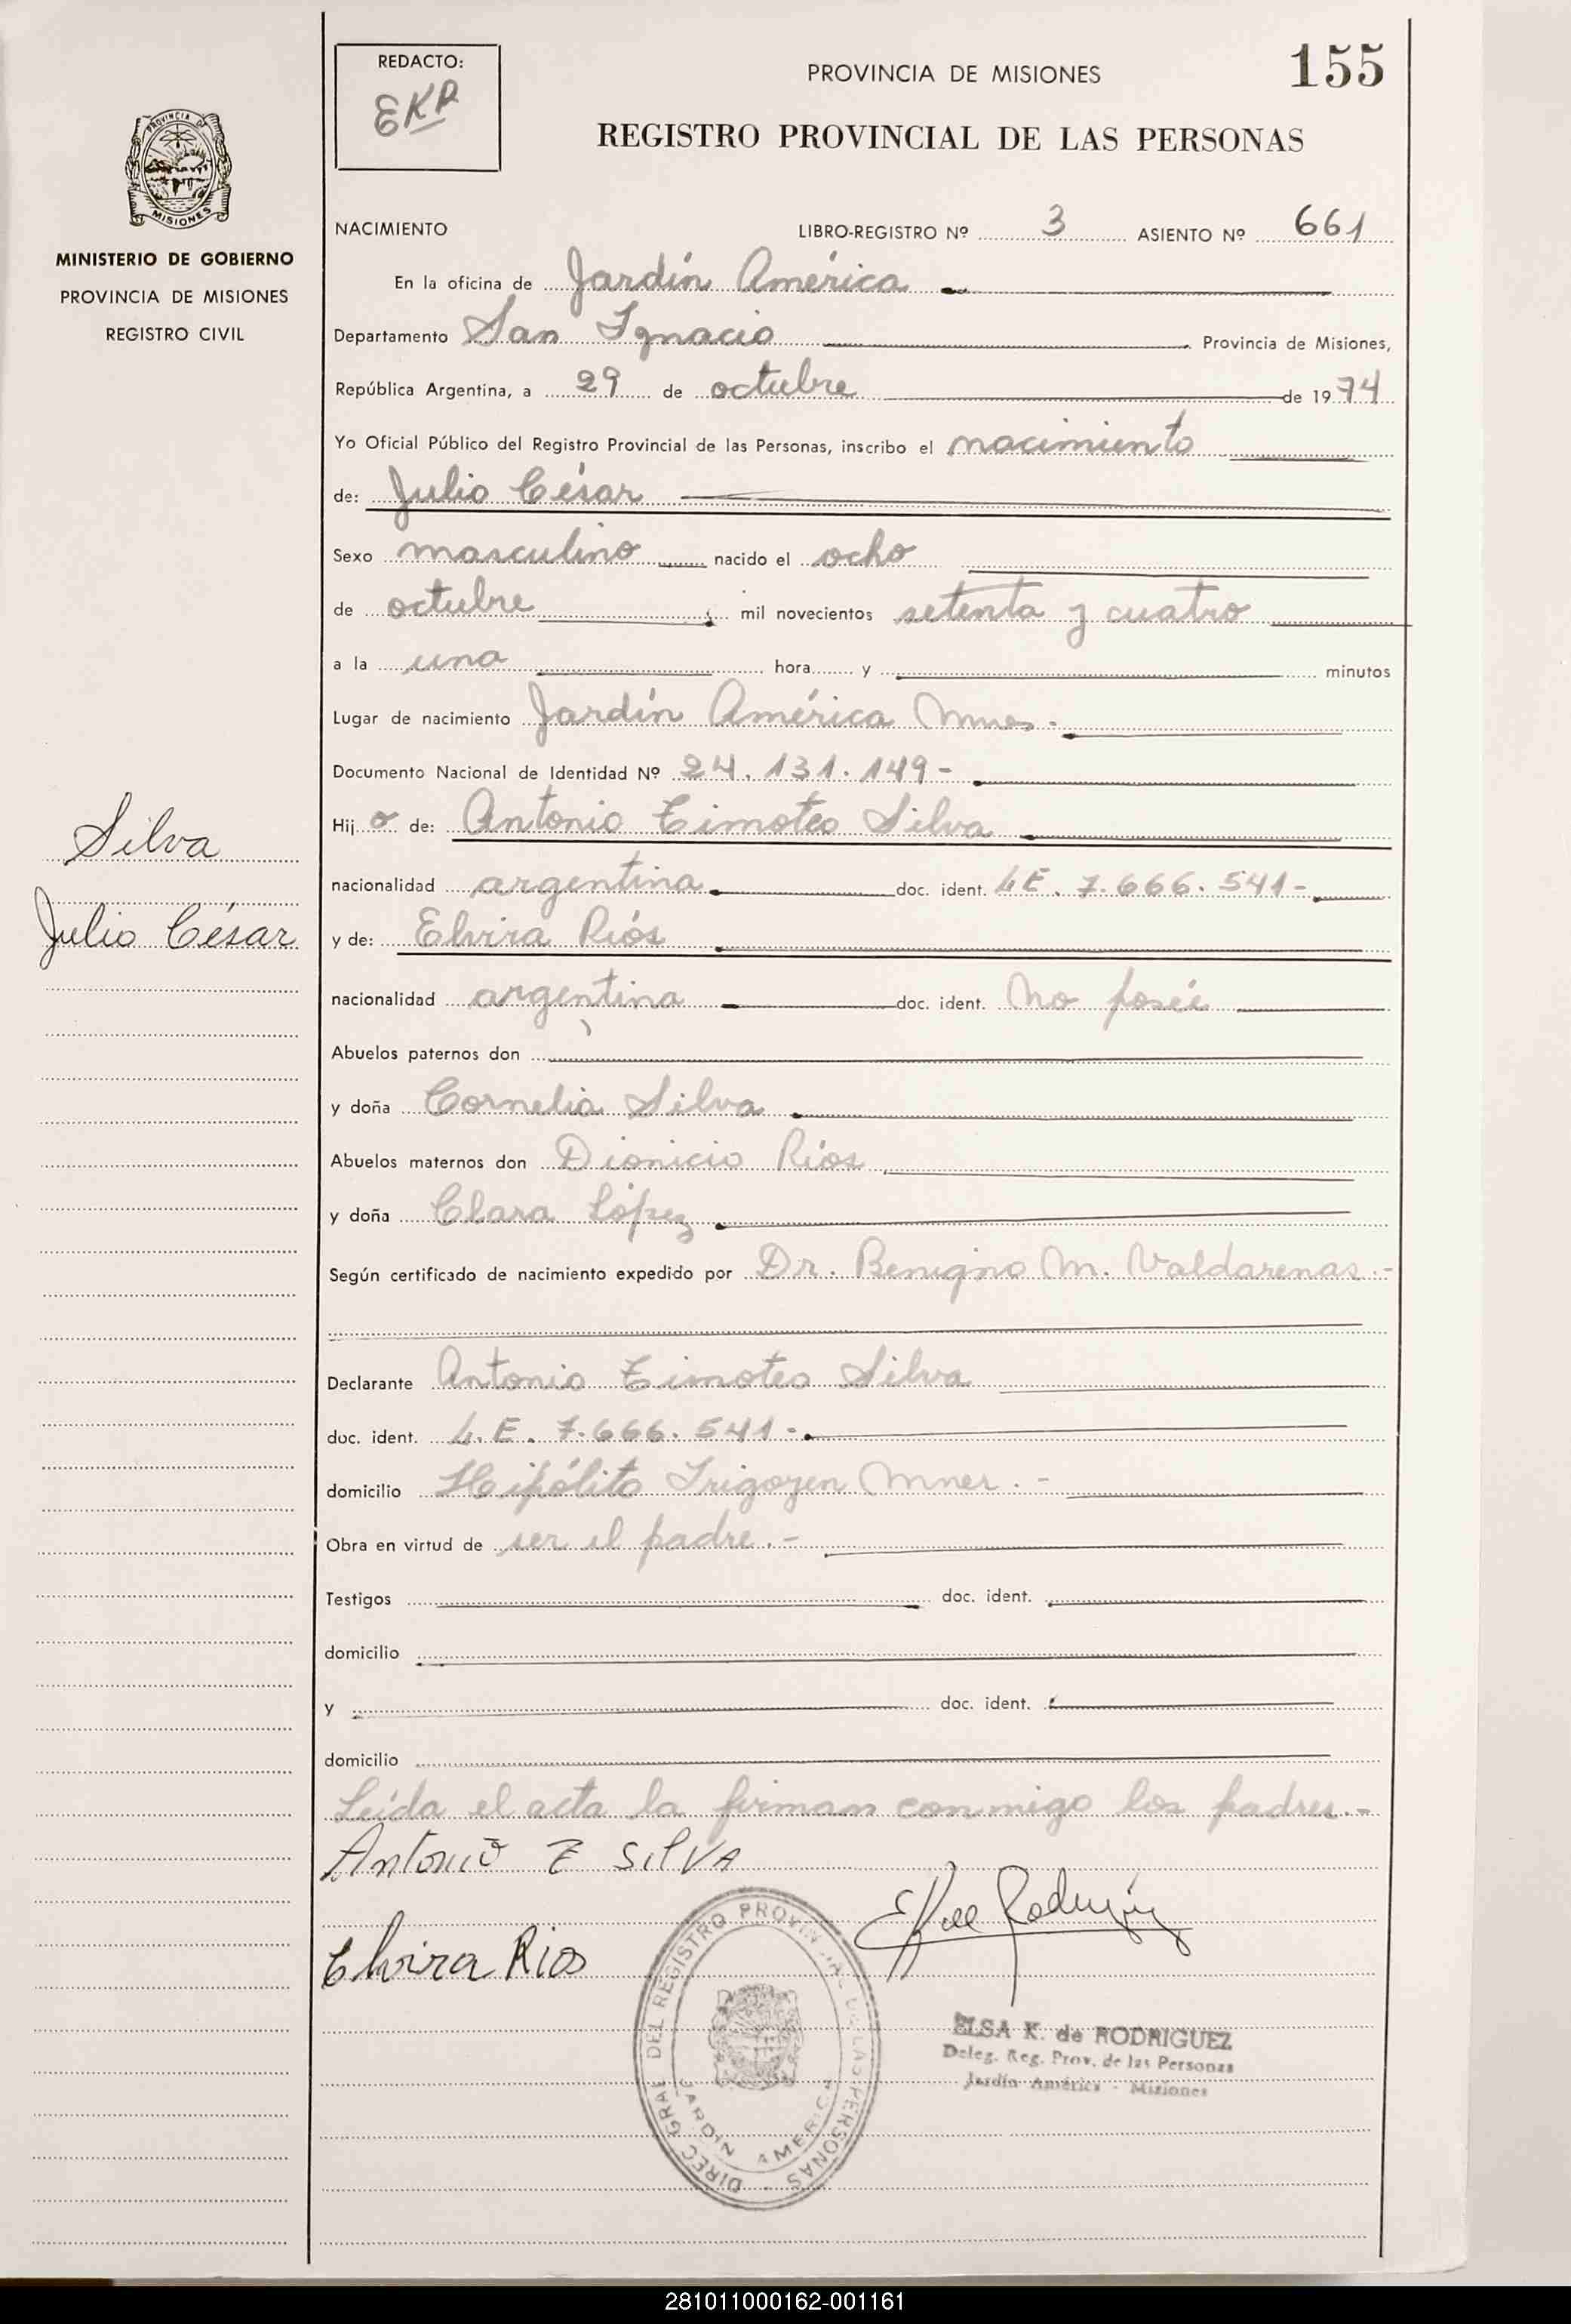 REDACTO:
EKR
PROVINCIA DE MISIONES
155
REGISTRO PROVINCIAL DE LAS PERSONAS
PROVINCIA DE
MISIONES
MINISTERIO DE GOBIERNO
PROVINCIA DE MISIONES
REGISTRO CIVIL
NACIMIENTO LIBRO-REGISTRO Nº 3 ASIENTO Nº 661
En la oficina de Jardín América
Departamento San Ignacio Provincia de Misiones,
República Argentina, a 29 de octubre de 1974
Yo Oficial Público del Registro Provincial de las Personas, inscribo el nacimiento
de: Julio César
Sexo masculino nacido el ocho
de octubre mil novecientos setenta y cuatro
a la una hora y minutos
Lugar de nacimiento Jardín América Mnes.
Documento Nacional de Identidad Nº 24.131.149-
Silva
Julio César
Hijo de: Antonio Timoteo Silva
nacionalidad argentina doc. ident. L.E. 7.666.541-
y de: Elvira Ríos
nacionalidad argentina doc. ident. No poseé
Abuelos paternos don
y doña Cornelia Silva
Abuelos maternos don Dionicio Ríos
y doña Clara López
Según certificado de nacimiento expedido por Dr. Benigno M. Valdarenas.-
Declarante Antonio Timoteo Silva
doc. ident. L.E. 7.666.541-.
domicilio Hipólito Irigoyen Mnes.-
Obra en virtud de ser el padre.-
Testigos doc. ident.
domicilio
y doc. ident.
domicilio
Leída el acta la firman conmigo los padres.-
Antonio T SILVA
Elvira Rios
DIREC GRAL DEL REGISTRO PROVINCIAL DE LAS PERSONAS
JARDIN AMERICA
ELSA K. de RODRIGUEZ
Deleg. Reg. Prov. de las Personas
Jardín América - Misiones
281011000162-001161